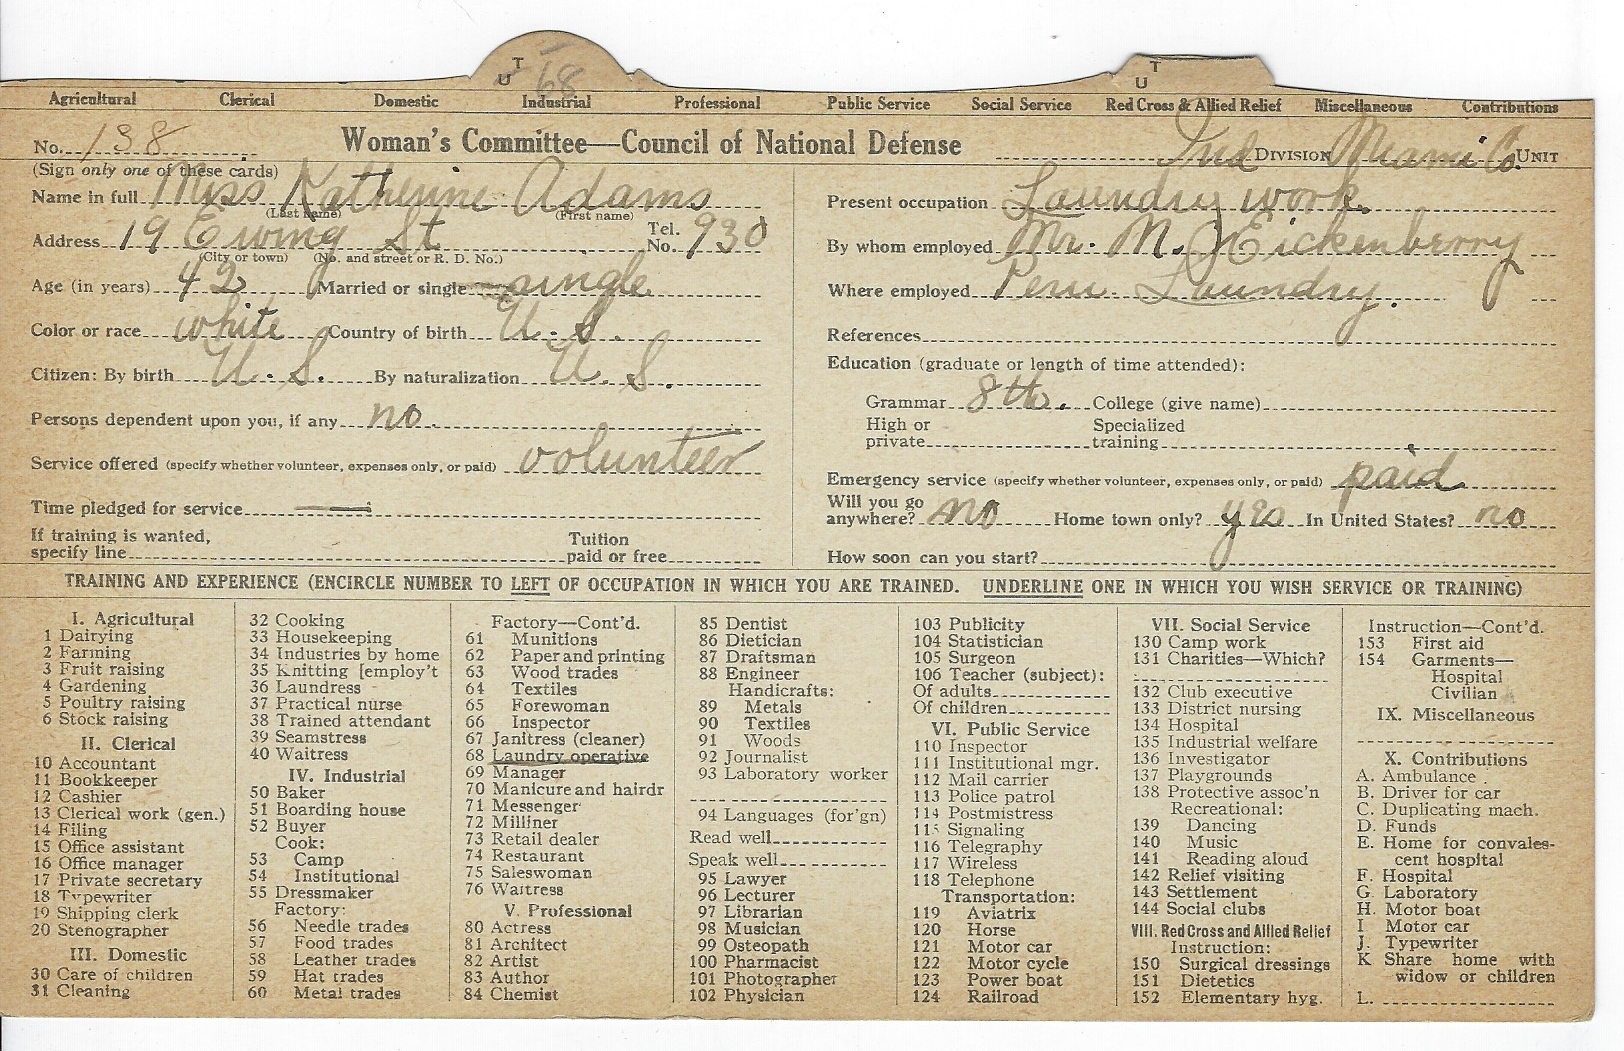 T
U 68
T
U
Agricultural Clerical Domestic Industrial Professional Public Service Social Service Red Cross & Allied Relief Miscellaneous Contributions
No. 138 Woman's Committee—Council of National Defense Ind DIVISION Miami Co. UNIT
(Sign only one of these cards)
Name in full Miss Katherine Adams
(Last name) (First name)
Address 19 Ewing St Tel. No. 930
(City or town) (No. and street or R. D. No.)
Age (in years) 42 Married or single single
Color or race white Country of birth U. S.
Citizen: By birth U. S. By naturalization U. S.
Persons dependent upon you, if any no
Service offered (specify whether volunteer, expenses only, or paid) volunteer
Time pledged for service —
If training is wanted,
specify line Tuition paid or free
Present occupation Laundry work.
By whom employed Mr. M. Eickenberry
Where employed Peru Laundry.
References
Education (graduate or length of time attended):
Grammar 8th. College (give name)
High or private Specialized training
Emergency service (specify whether volunteer, expenses only, or paid) paid
Will you go anywhere? no Home town only? yes In United States? no
How soon can you start?
TRAINING AND EXPERIENCE (ENCIRCLE NUMBER TO LEFT OF OCCUPATION IN WHICH YOU ARE TRAINED. UNDERLINE ONE IN WHICH YOU WISH SERVICE OR TRAINING)
I. Agricultural
1 Dairying
2 Farming
3 Fruit raising
4 Gardening
5 Poultry raising
6 Stock raising
II. Clerical
10 Accountant
11 Bookkeeper
12 Cashier
13 Clerical work (gen.)
14 Filing
15 Office assistant
16 Office manager
17 Private secretary
18 Typewriter
19 Shipping clerk
20 Stenographer
III. Domestic
30 Care of children
31 Cleaning
32 Cooking
33 Housekeeping
34 Industries by home
35 Knitting [employ't
36 Laundress
37 Practical nurse
38 Trained attendant
39 Seamstress
40 Waitress
IV. Industrial
50 Baker
51 Boarding house
52 Buyer
Cook:
53 Camp
54 Institutional
55 Dressmaker
Factory:
56 Needle trades
57 Food trades
58 Leather trades
59 Hat trades
60 Metal trades
Factory—Cont'd.
61 Munitions
62 Paper and printing
63 Wood trades
64 Textiles
65 Forewoman
66 Inspector
67 Janitress (cleaner)
68 Laundry operative
69 Manager
70 Manicure and hairdr
71 Messenger
72 Milliner
73 Retail dealer
74 Restaurant
75 Saleswoman
76 Waitress
V. Professional
80 Actress
81 Architect
82 Artist
83 Author
84 Chemist
85 Dentist
86 Dietician
87 Draftsman
88 Engineer
Handicrafts:
89 Metals
90 Textiles
91 Woods
92 Journalist
93 Laboratory worker
94 Languages (for'gn)
Read well
Speak well
95 Lawyer
96 Lecturer
97 Librarian
98 Musician
99 Osteopath
100 Pharmacist
101 Photographer
102 Physician
103 Publicity
104 Statistician
105 Surgeon
106 Teacher (subject):
Of adults
Of children
VI. Public Service
110 Inspector
111 Institutional mgr.
112 Mail carrier
113 Police patrol
114 Postmistress
115 Signaling
116 Telegraphy
117 Wireless
118 Telephone
Transportation:
119 Aviatrix
120 Horse
121 Motor car
122 Motor cycle
123 Power boat
124 Railroad
VII. Social Service
130 Camp work
131 Charities—Which?
132 Club executive
133 District nursing
134 Hospital
135 Industrial welfare
136 Investigator
137 Playgrounds
138 Protective assoc'n
Recreational:
139 Dancing
140 Music
141 Reading aloud
142 Relief visiting
143 Settlement
144 Social clubs
VIII. Red Cross and Allied Relief
Instruction:
150 Surgical dressings
151 Dietetics
152 Elementary hyg.
Instruction—Cont'd.
153 First aid
154 Garments—
Hospital
Civilian
IX. Miscellaneous
X. Contributions
A. Ambulance
B. Driver for car
C. Duplicating mach.
D. Funds
E. Home for convales-
cent hospital
F. Hospital
G. Laboratory
H. Motor boat
I Motor car
J. Typewriter
K Share home with
widow or children
L.